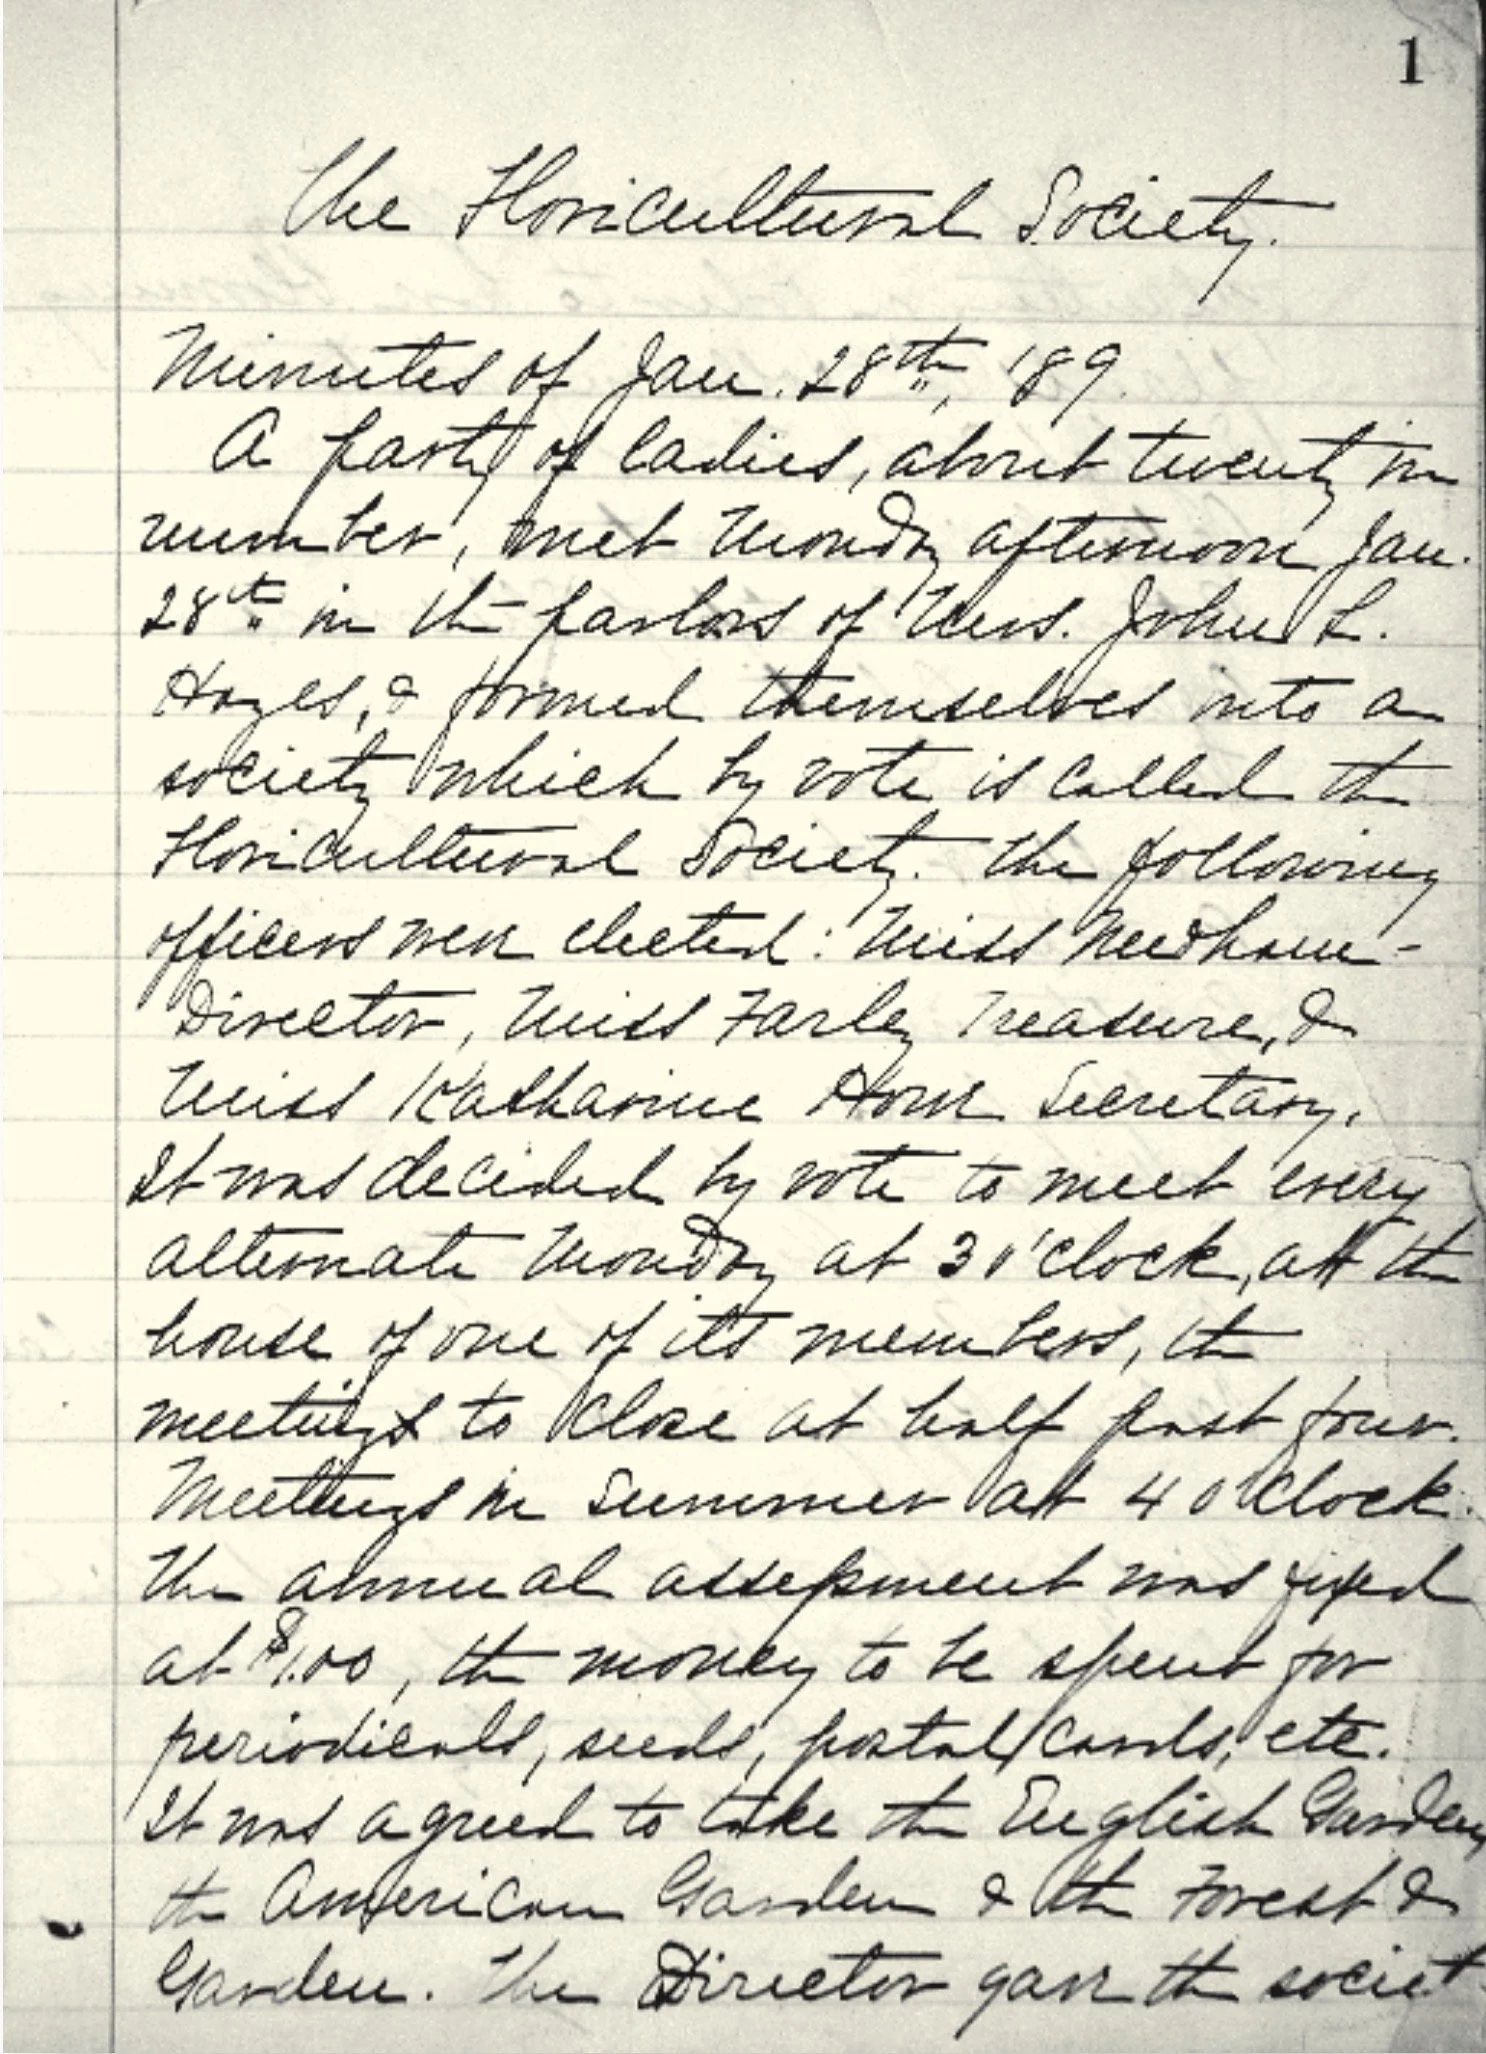 1
The Floricultural Society.
Minutes of Jan. 28th, '89.
A party of ladies, about twenty in
number, met Monday afternoon Jan.
28th in the parlors of Mrs. John L.
Hayes, & formed themselves into a
society which by vote is called the
Floricultural Society. The following
officers were elected: Miss Needham -
Director, Miss Farley Treasure, &
Miss Katharine Horn Secretary.
It was decided by vote to meet every
alternate Monday at 3 o'clock, at the
house of one of its members, the
meetings to close at half past four.
Meetings in summer at 4 o'clock.
The annual assessment was fixed
at $1.00, the money to be spent for
periodicals, seeds, postal cards, etc.
It was agreed to take the English Garden,
the American Garden & the Forest &
Garden. The Director gave the societ